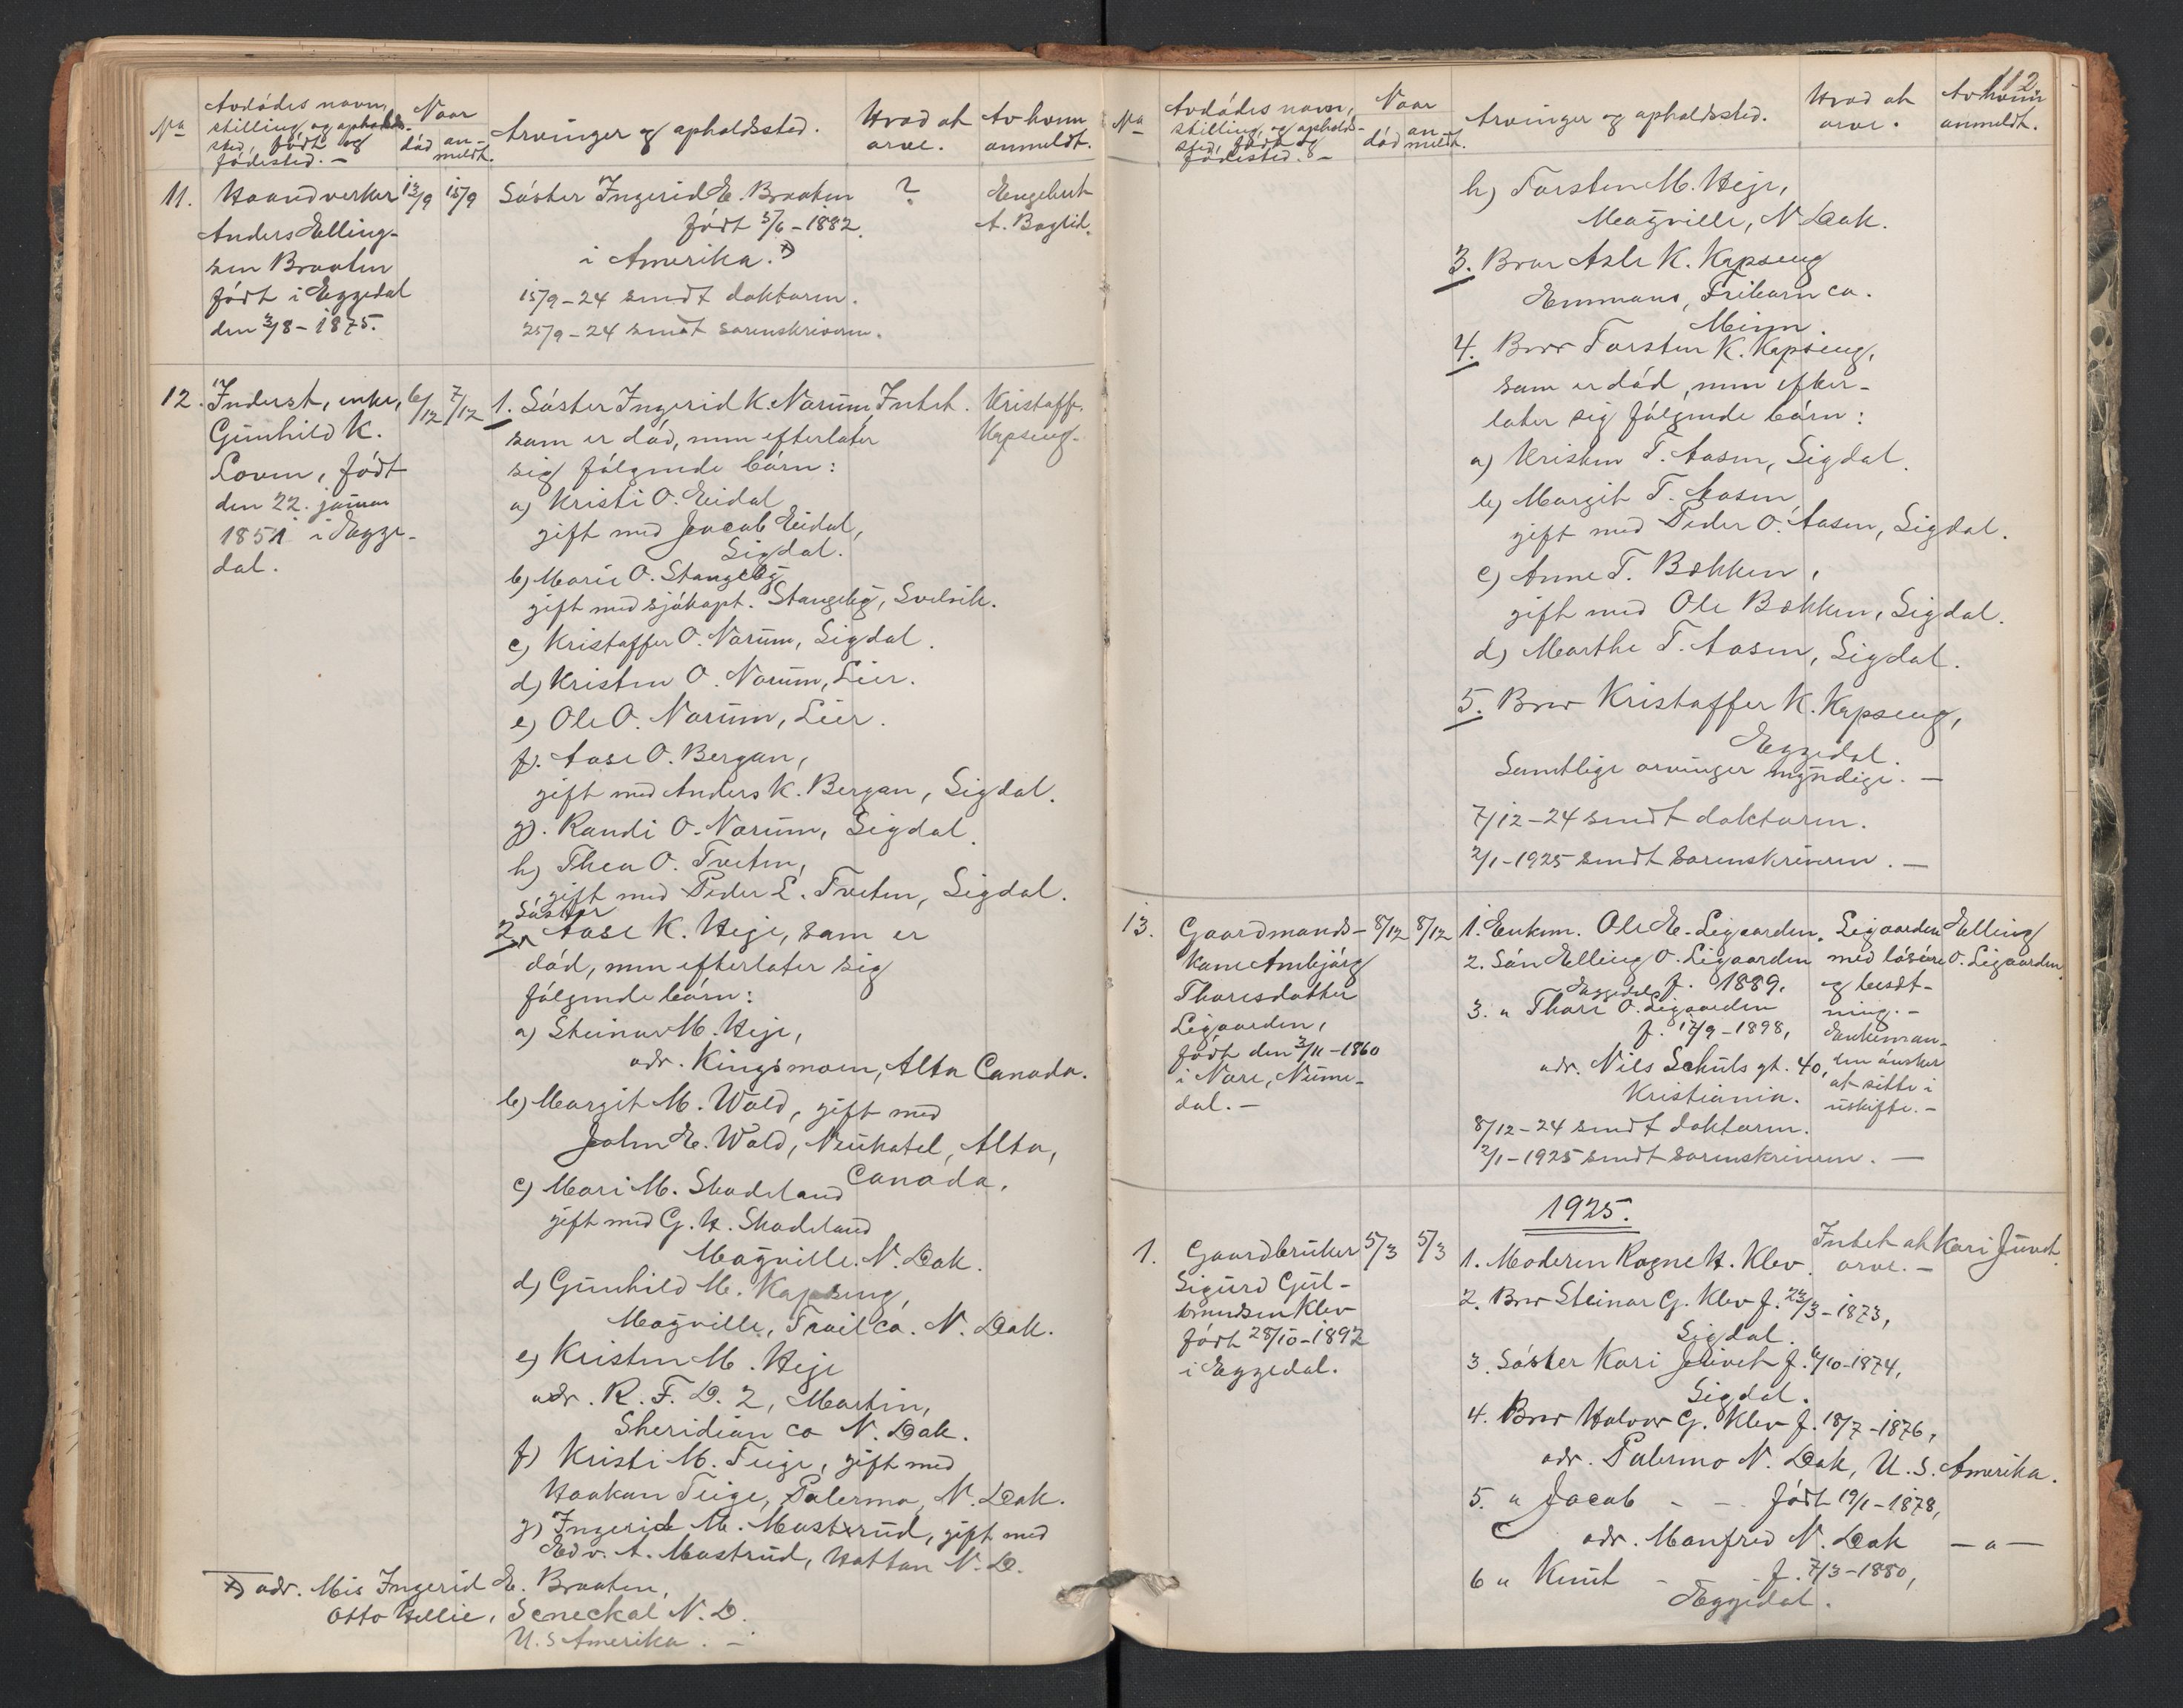 No
Avdødes navn,
stilling og opholds-
sted, født og
fødested. –
Naar
død
an-
meldt.
Arvinger og opholdssted.
Hvad at
arve.
Av hvem
anmeldt.
11.
Haandverker
Anders Elling-
sen Braaten
født i Eggedal
den 3/8 – 1875.
13/9
15/9
Søster Ingerid E. Braaten
født 5/6 – 1882.
i Amerika. x)
15/9 – 24 sendt doktoren.
25/9 – 24 sendt sorenskriveren.
?
Engebret
A. Bagrid.
12.
Inderst, enke,
Gunhild K.
Loven, født
den 22. januar
1851 i Egge-
dal.
6/12
7/12
1. Søster Ingerid K. Narum,
som er død, men efterlater
sig følgende børn:
a) Kristi O. Eidal
gift med Jacob Eidal,
Sigdal.
b) Marie O. Stangeby
gift med sjøkapt. Stangeby, Svelvik.
c) Kristoffer O. Narum, Sigdal.
d) Kristen O. Narum, Lier.
e) Ole O. Narum, Lier.
f). Aase O. Bergan,
gift med Anders K. Bergan, Sigdal.
g). Randi O. Narum, Sigdal.
h) Thea O. Tveten,
gift med Peder L. Tveten, Sigdal.
Søster
2. Aase K. Heje, som er
død, men efterlater sig
følgende børn:
a) Steinar M. Heje,
adr. Kingsmoen, Alta Canada.
b) Margit M. Wold, gift med
John E. Wold, Neukatel, Alta,
Canada.
c) Mari M. Skadeland
gift med G. H. Skadeland
Mayville. N. Dak.
d) Gunhild M. Kapseng,
Mayville, Trail Co. N. Dak.
e) Kristen M. Heje
adr. R. F. D. 2, Martin,
Sheridian Co N. Dak.
f) Kristi M. Teige, gift med
Haakon Teige, Palermo, N. Dak.
g) Ingerid M. Mastrud, gift med
Edv. A. Mastrud, Hatton N. D.
Intet.
Kristoff.
Kapseng.
x) adr. Mis Ingerid E. Braaten,
Otto Hellie, Seneckal N. D.
U. S Amerika. –
112
No
Avdødes navn,
stilling, og opholds-
sted, født og
fødested. –
Naar
død
an-
meldt.
Arvinger og opholdssted.
Hvad at
arve.
Av hvem
anmeldt.
h) Torsten M. Heje,
Mayville, N Dak.
3. Bror Asle K. Kapseng
Emmans, Fribarn Co.
Minn.
4. Bror Torsten K. Kapseng,
som er død, men efter-
later sig følgende børn:
a) Kristen T. Aasen, Sigdal.
b) Margit T. Aasen,
gift med Peder O. Aasen, Sigdal.
c) Anne T. Bækken,
gift med Ole Bækken, Sigdal.
d) Marthe T. Aasen, Sigdal.
5. Bror Kristoffer K. Kapseng,
Eggedal.
Samtlige arvinger myndige. –
7/12 – 24 sendt doktoren.
2/1 – 1925 sendt sorenskriveren. –
13.
Gaardmands-
kone Ambjørg
Thoresdatter
Ligaarden,
født den 3/11 – 1860
i Nore, Nume-
dal. –
8/12
8/12
1. Enkem. Ole E. Ligaarden.
2. Søn Elling O. Ligaarden
Eggedal f. 1889.
3. " Thore O. Ligaarden
f. 17/9 – 1898,
adr. Nils Schuls gt. 40,
Kristiania.
8/12 – 24 sendt doktoren.
2/1 – 1925 sendt sorenskriveren. –
Ligaarden
med løsøre
og besæt-
ning. –
Enkeman-
den ønsker
at sitte i
uskifte. –
Elling
O. Ligaarden.
1925.
1.
Gaardbruker
Sigurd Gul-
brandsen Klev
født 28/10 – 1892
i Eggedal.
5/3
5/3
1. Moderen Ragne H. Klev.
2. Bror Steinar G. Klev f. 23/3 – 1873,
Sigdal.
3. Søster Kari Juvet f. 6/10 – 1874,
Sigdal.
4. Bror Halvor G. Klev f. 18/7 – 1876,
adr. Palermo N. Dak, U. S. Amerika.
5. " Jacob – – født 19/1 – 1878,
adr. Manfred N. Dak — " —
6 " Knut – – f. 7/3 – 1880,
Eggedal.
Intet at
arve. –
Kari Juvet.